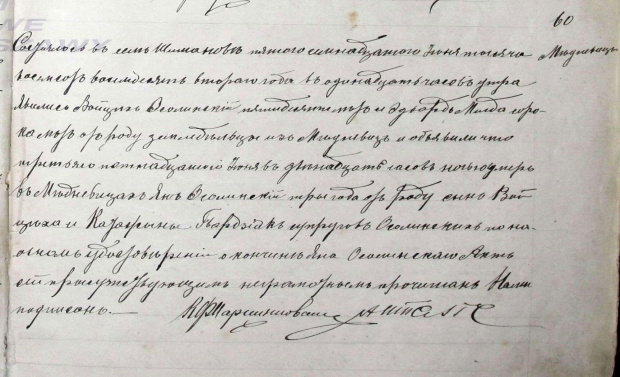 60
Состоялось въ селѣ Шимановѣ пятого семнадцатого Іюня тысяча
Мѣдневицы
восемсотъ восемдесятъ втораго года въ одинадцать часовъ утра
Явились Войцехъ Осолинскій пятидесяти лѣтъ и Эдвардъ сорока
лѣтъ отъ роду земледѣльцы изъ Мѣдневицъ и объявили что
третьяго пятнадцатого Іюня въ двѣнадцать часовъ ночью умеръ
въ Мѣдневицахъ Янъ Осолинскій три года отъ роду сынъ Вой
цѣха и Катарѣины супруговъ Осолинскихъ по на
очномъ удостовѣреніи о кончинѣ Яна Осолинскаго Актъ
сей присутствующимъ неграмотнымъ прочитанъ Нами
подписанъ.